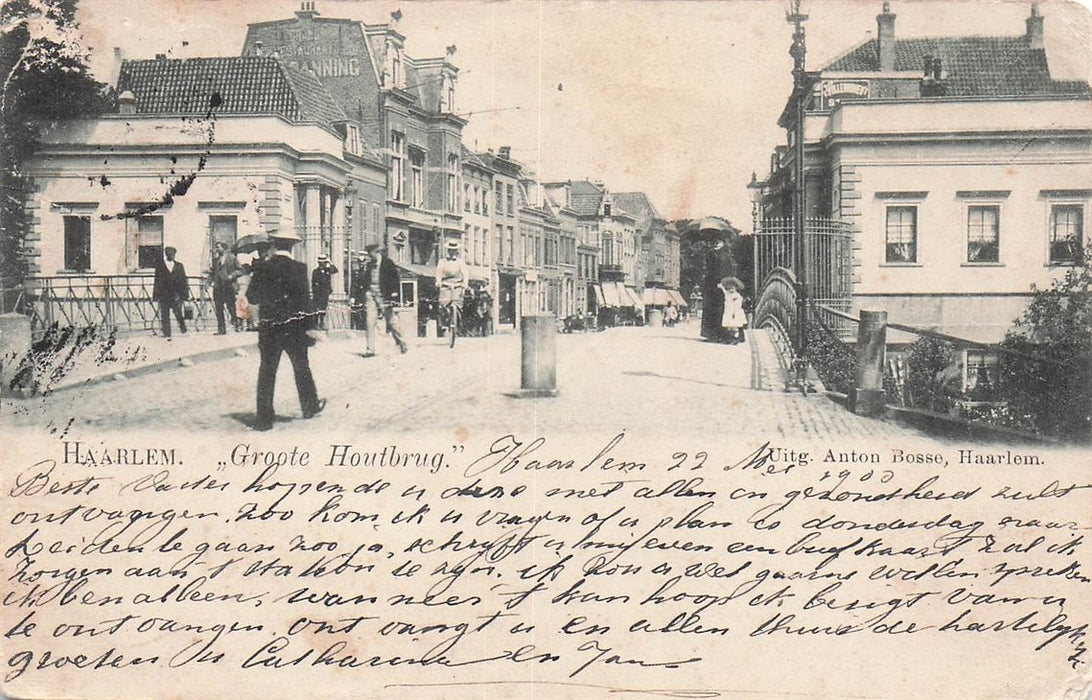 RESTAURANT
MANNING
HAARLEM. „Groote Houtbrug." Uitg. Anton Bosse, Haarlem.
Haarlem 22 Mei 1900
Beste Vader hopende u deze met allen in gezondheid zult
ontvangen. zoo kom ik u vragen of u plan is donderdag naar
Leiden te gaan zoo ja, schryft u mij even een briefkaart zal ik
zorgen aan 't station te zyn. ik zou u wel gaarne willen spreken
ik ben alleen, wanneer 't kan hoop ik berigt van u
te ontvangen. ontvangt u en allen thuis de hartelyk
groeten u Catharina en Jans